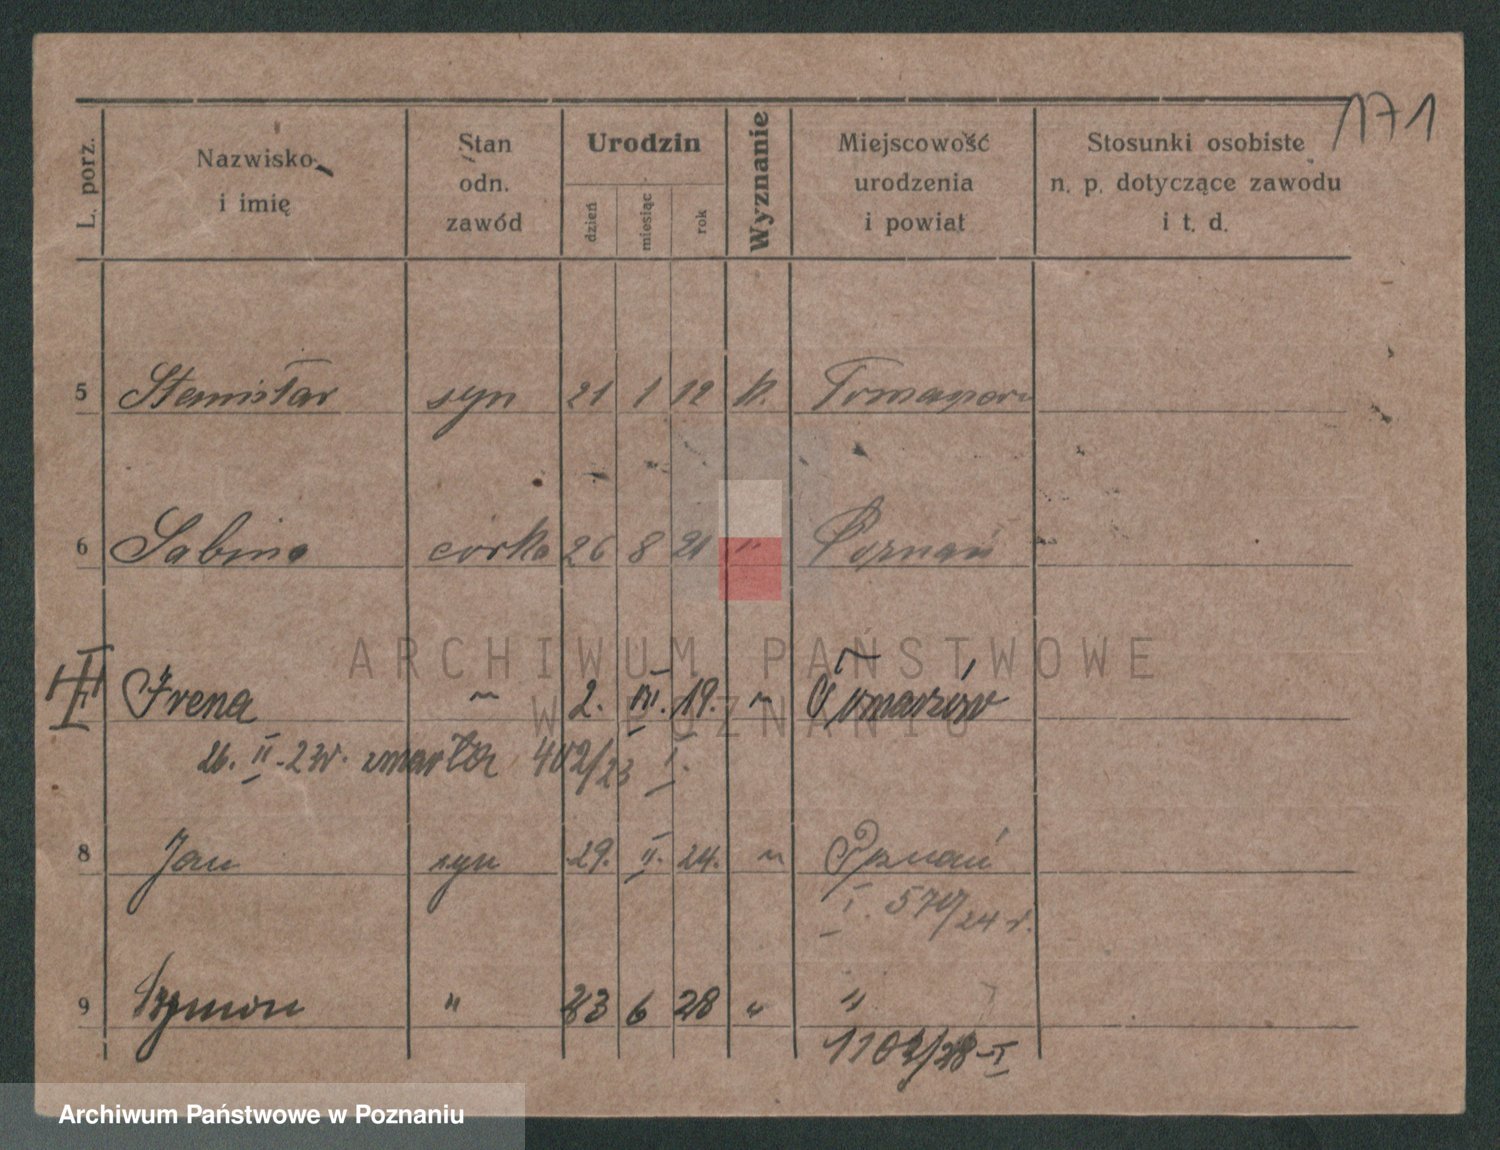 171
L. porz.
Nazwisko i imię
Stan odn. zawód
Urodzin
dzień
miesiąc
rok
Wyznanie
Miejscowość urodzenia i powiat
Stosunki osobiste n. p. dotyczące zawodu i t. d.
5 Stanisław syn 21 1 12 k.
6 Sabina córka 26 8 21 " Poznań
III Irena " 2. III. 19. "
26. II. 23r. zmarła 402/23 I.
8 Jan syn 29. II. 24. " Poznań
I. 570/24 r.
9 Szymon " 23 6 28 " "
1102/28-I
ARCHIWUM PAŃSTWOWE
W POZNANIU
Archiwum Państwowe w Poznaniu